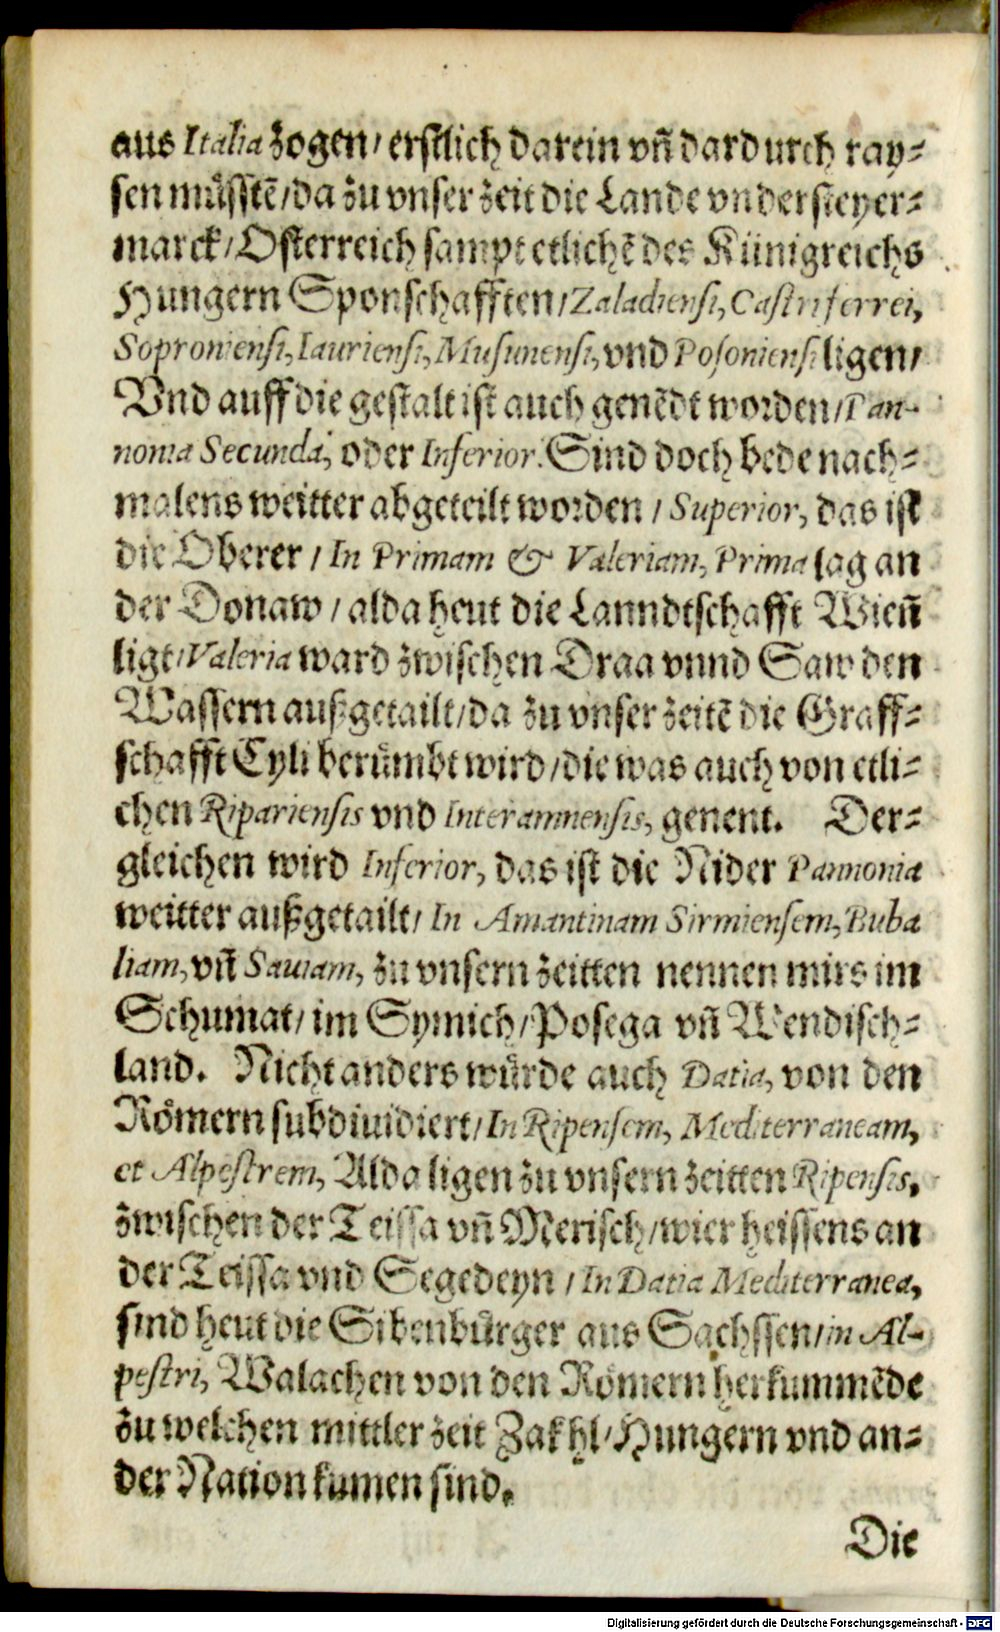 aus Italia zogen/ erstlich darein vñ dardurch ray⸗
sen müsstẽ/ da zu vnser zeit die Lande vndersteyer⸗
marck/ Osterreich sampt etlichẽ des Künigreichs
Hungern Sponschafften/ Zaladiensi, Castriferrei,
Soproniensi, Iauriensi, Musunensi, vnd Posoniensi ligen/
Vnd auff die gestalt ist auch genẽdt worden/ Pan-
nonia Secunda, oder Inferior. Sind doch bede nach⸗
malens weitter abgeteilt worden / Superior, das ist
die Oberer / In Primam & Valeriam, Prima lag an
der Donaw / alda heut die Lanndtschafft Wieñ
ligt/ Valeria ward zwischen Draa vnnd Saw den
Wassern außgetailt/ da zu vnser zeitẽ die Graff⸗
schafft Cyli berůmbt wird/ die was auch von etli⸗
chen Ripariensis vnd Interamnensis, genent. Der⸗
gleichen wird Inferior, das ist die Nider Pannonia
weitter außgetailt/ In Amantinam Sirmiensem, Buba
liam, vñ Sauiam, zu vnsern zeitten nennen mirs im
Schumat/ im Symich/ Posega vñ Wendisch⸗
land. Nicht anders würde auch Datia, von den
Römern subdiuidiert/ In Ripensem, Mediterraneam,
et Alpestrem, Alda ligen zu vnsern zeitten Ripensis,
zwischen der Teissa vñ Merisch/ wier heissens an
der Teissa vnd Segedeyn / In Datia Mediterranea,
sind heut die Sibenbůrger aus Sachssen/ in Al-
pestri, Walachen von den Römern herkummẽde
zu welchen mittler zeit Zakhl/ Hungern vnd an⸗
der Nation kumen sind.
Die
Digitalisierung gefördert durch die Deutsche Forschungsgemeinschaft - DFG